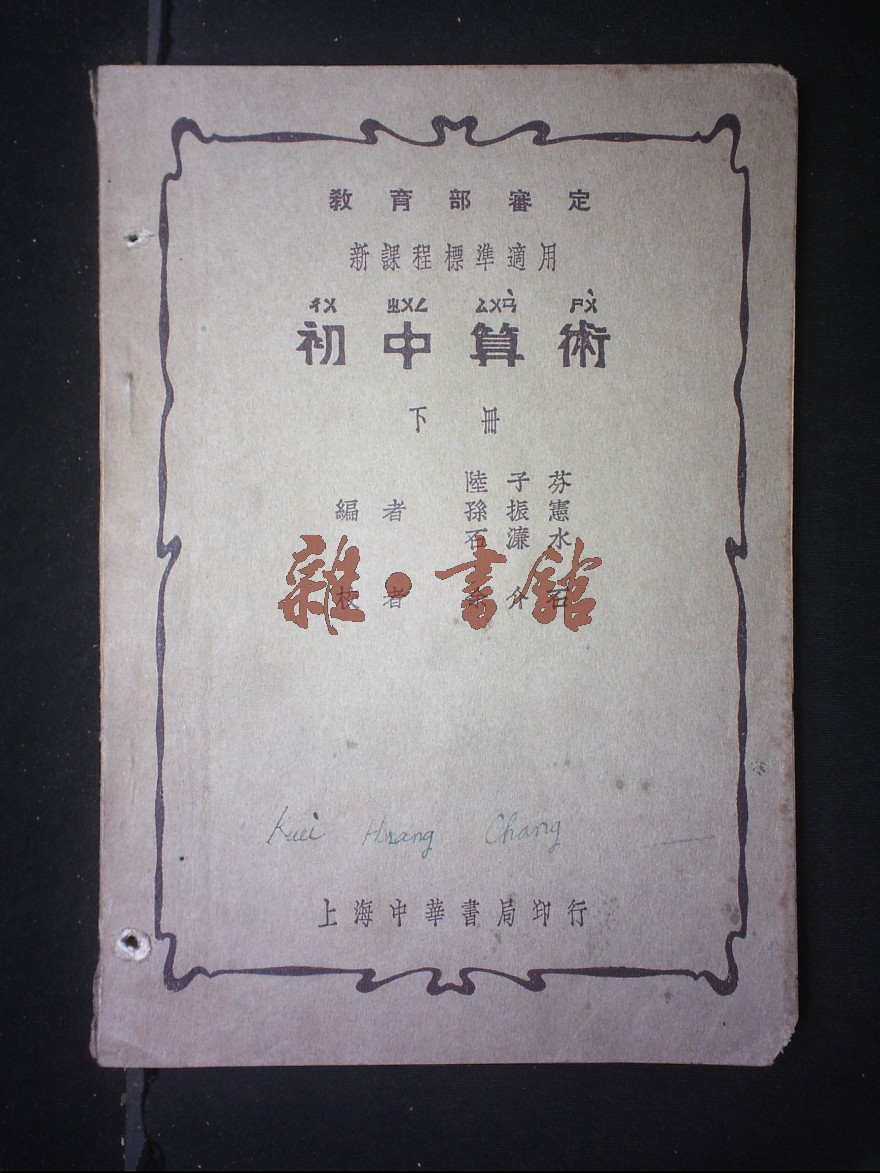 教育部審定
新課程標準適用
ㄔㄨ ㄓㄨㄥ ㄙㄨㄢˋ ㄕㄨˋ
初中算術
下冊
陸子芬
編者 孫振憲
石濂水
校者 余介石
雜·書館
Kuei Hwang Chang
上海中華書局印行